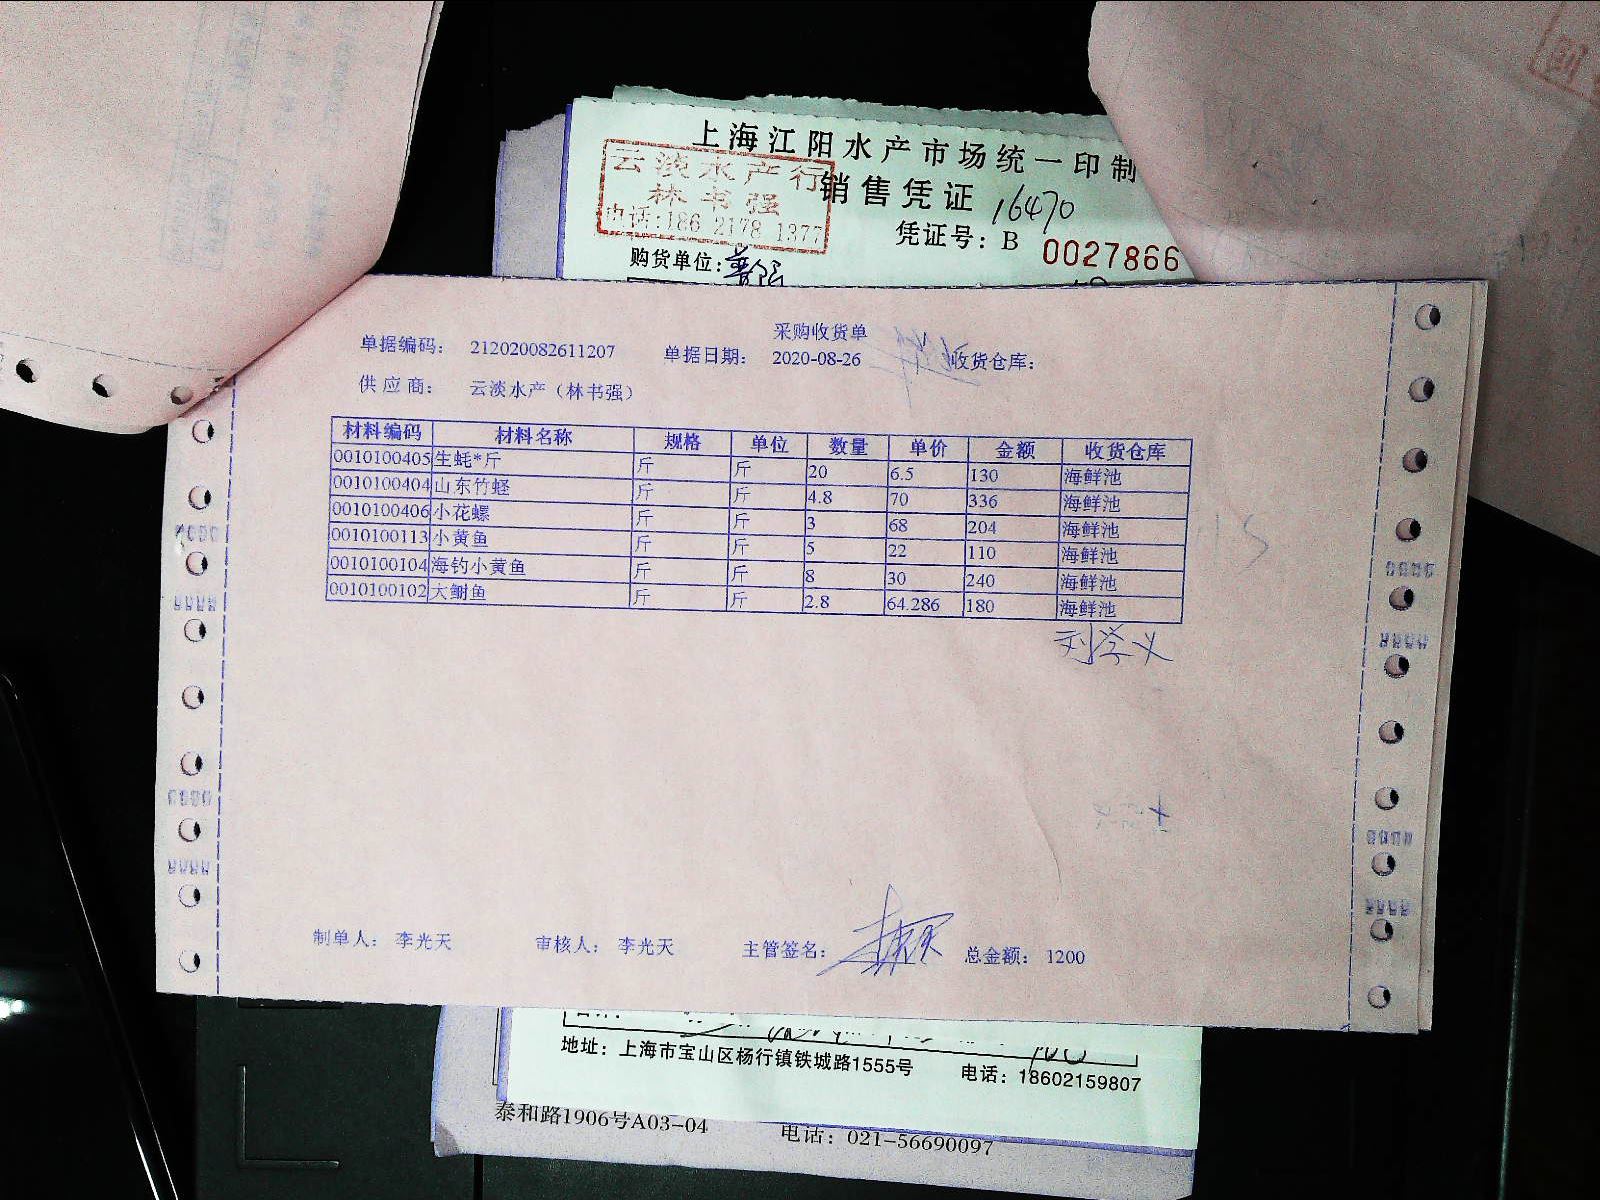 上海江阳水产市场统一印制
云淡水产行
林书强
电话:186 2178 1377
销售凭证 16470
凭证号: B 0027866
购货单位:
采购收货单
单据编码: 212020082611207 单据日期: 2020-08-26 收货仓库:
供应商: 云淡水产（林书强）
材料编码 材料名称 规格 单位 数量 单价 金额 收货仓库
0010100405 生蚝*斤 斤 斤 20 6.5 130 海鲜池
0010100404 山东竹蛏 斤 斤 4.8 70 336 海鲜池
0010100406 小花螺 斤 斤 3 68 204 海鲜池
0010100113 小黄鱼 斤 斤 5 22 110 海鲜池
0010100104 海钓小黄鱼 斤 斤 8 30 240 海鲜池
0010100102 大鲥鱼 斤 斤 2.8 64.286 180 海鲜池
刘学义
制单人: 李光天 审核人: 李光天 主管签名: 总金额: 1200
地址: 上海市宝山区杨行镇铁城路1555号 电话: 18602159807
泰和路1906号A03-04 电话: 021-56690097